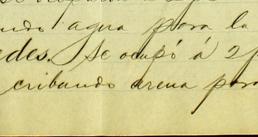 ndo agua para la
edes. Se ocupó á 2
cribando arena para